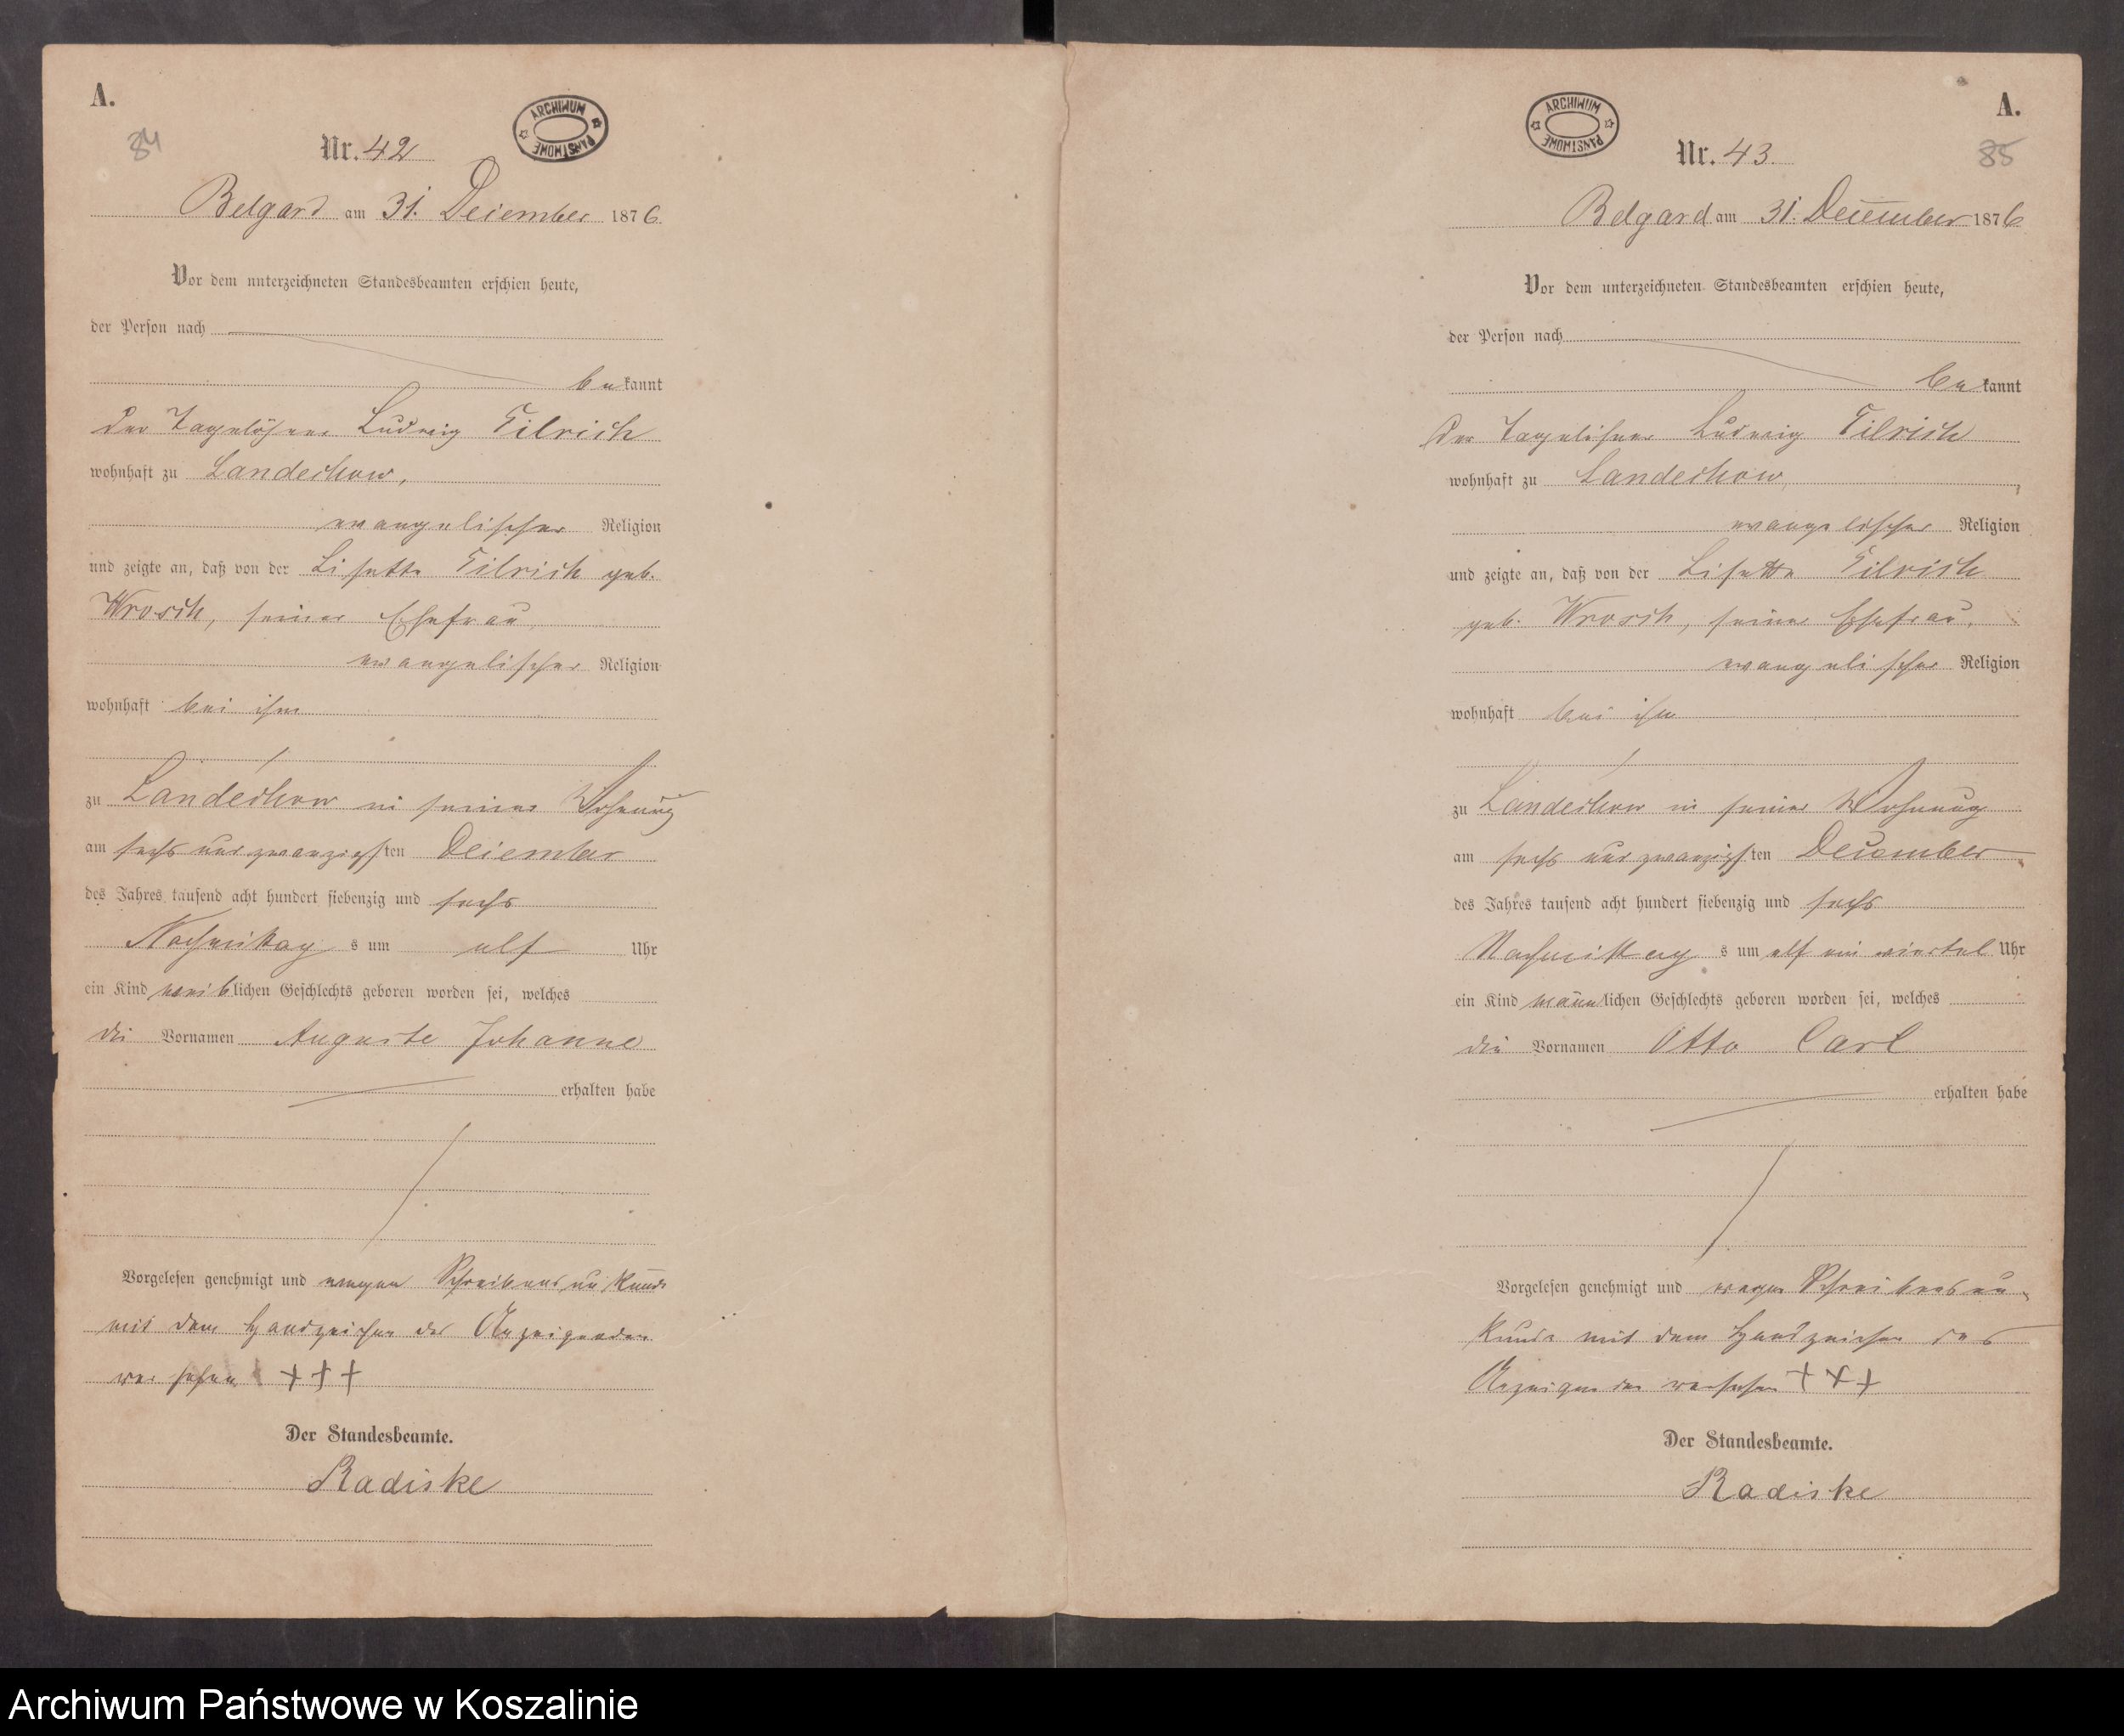 A.
84
ARCHIWUM PAŃSTWOWE
Nr. 42
Belgard am 31. December 1876
Vor dem unterzeichneten Standesbeamten erschien heute,
der Person nach
bekannt
der Tagelöhner Ludwig Tilrich
wohnhaft zu Landechow,
evangelischer Religion
und zeigte an, daß von der Lisette Tilrich geb.
Wrosch, seiner Ehefrau,
evangelischer Religion
wohnhaft bei ihm
zu Landechow in seiner Wohnung
am sechs und zwanzigsten December
des Jahres tausend acht hundert siebenzig und sechs
Nachmittags um elf Uhr
ein Kind weiblichen Geschlechts geboren worden sei, welches
die Vornamen Auguste Johanne
erhalten habe
Vorgelesen genehmigt und wegen Schreibensunkunde
mit dem Handzeichen des Anzeigenden
versehen +++
Der Standesbeamte.
Radiske
A.
85
ARCHIWUM PAŃSTWOWE
Nr. 43
Belgard am 31. December 1876
Vor dem unterzeichneten Standesbeamten erschien heute,
der Person nach
bekannt
der Tagelöhner Ludwig Tilrich
wohnhaft zu Landechow,
evangelischer Religion
und zeigte an, daß von der Lisette Tilrich
geb. Wrosch, seiner Ehefrau,
evangelischer Religion
wohnhaft bei ihm
zu Landechow in seiner Wohnung
am sechs und zwanzigsten December
des Jahres tausend acht hundert siebenzig und sechs
Nachmittags um elf ein viertel Uhr
ein Kind männlichen Geschlechts geboren worden sei, welches
die Vornamen Otto Carl
erhalten habe
Vorgelesen genehmigt und wegen Schreibensun-
kunde mit dem Handzeichen des
Anzeigenden versehen +++
Der Standesbeamte.
Radiske
Archiwum Państwowe w Koszalinie